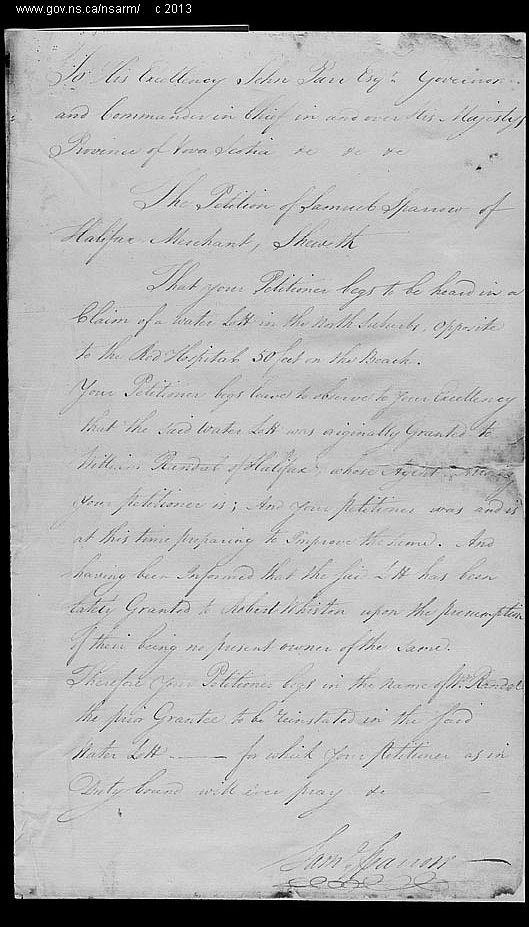 www.gov.ns.ca/nsarm/ c 2013
To His Excellency John Parr Esqr. Governor
and Commander in Chief in and over His Majestys
Province of Nova Scotia &c &c &c
The Petition of Samuel Sparrow of
Halifax Merchant, Sheweth
That your Petitioner begs to be heard in a
Claim of a water Lott in the North Suburbs, opposite
to the Red Hospital 50 feet on the Beach.
Your Petitioner begs leave to observe to your Excellency
that the said Water Lott was originally Granted to
William Randal of Halifax, whose Agent
your petitioner is; And your petitioner was and is
at this time preparing to Improve the same. And
having been Informed that the said Lott has been
lately Granted to Robert Whiston upon the presumption
of their being no present owner of the same.
Therefore your Petitioner begs in the name of Wm Randal
the prior Grantee to be reinstated in the said
Water Lott —— for which your Petitioner as in
Duty bound will ever pray &c
Saml Sparrow